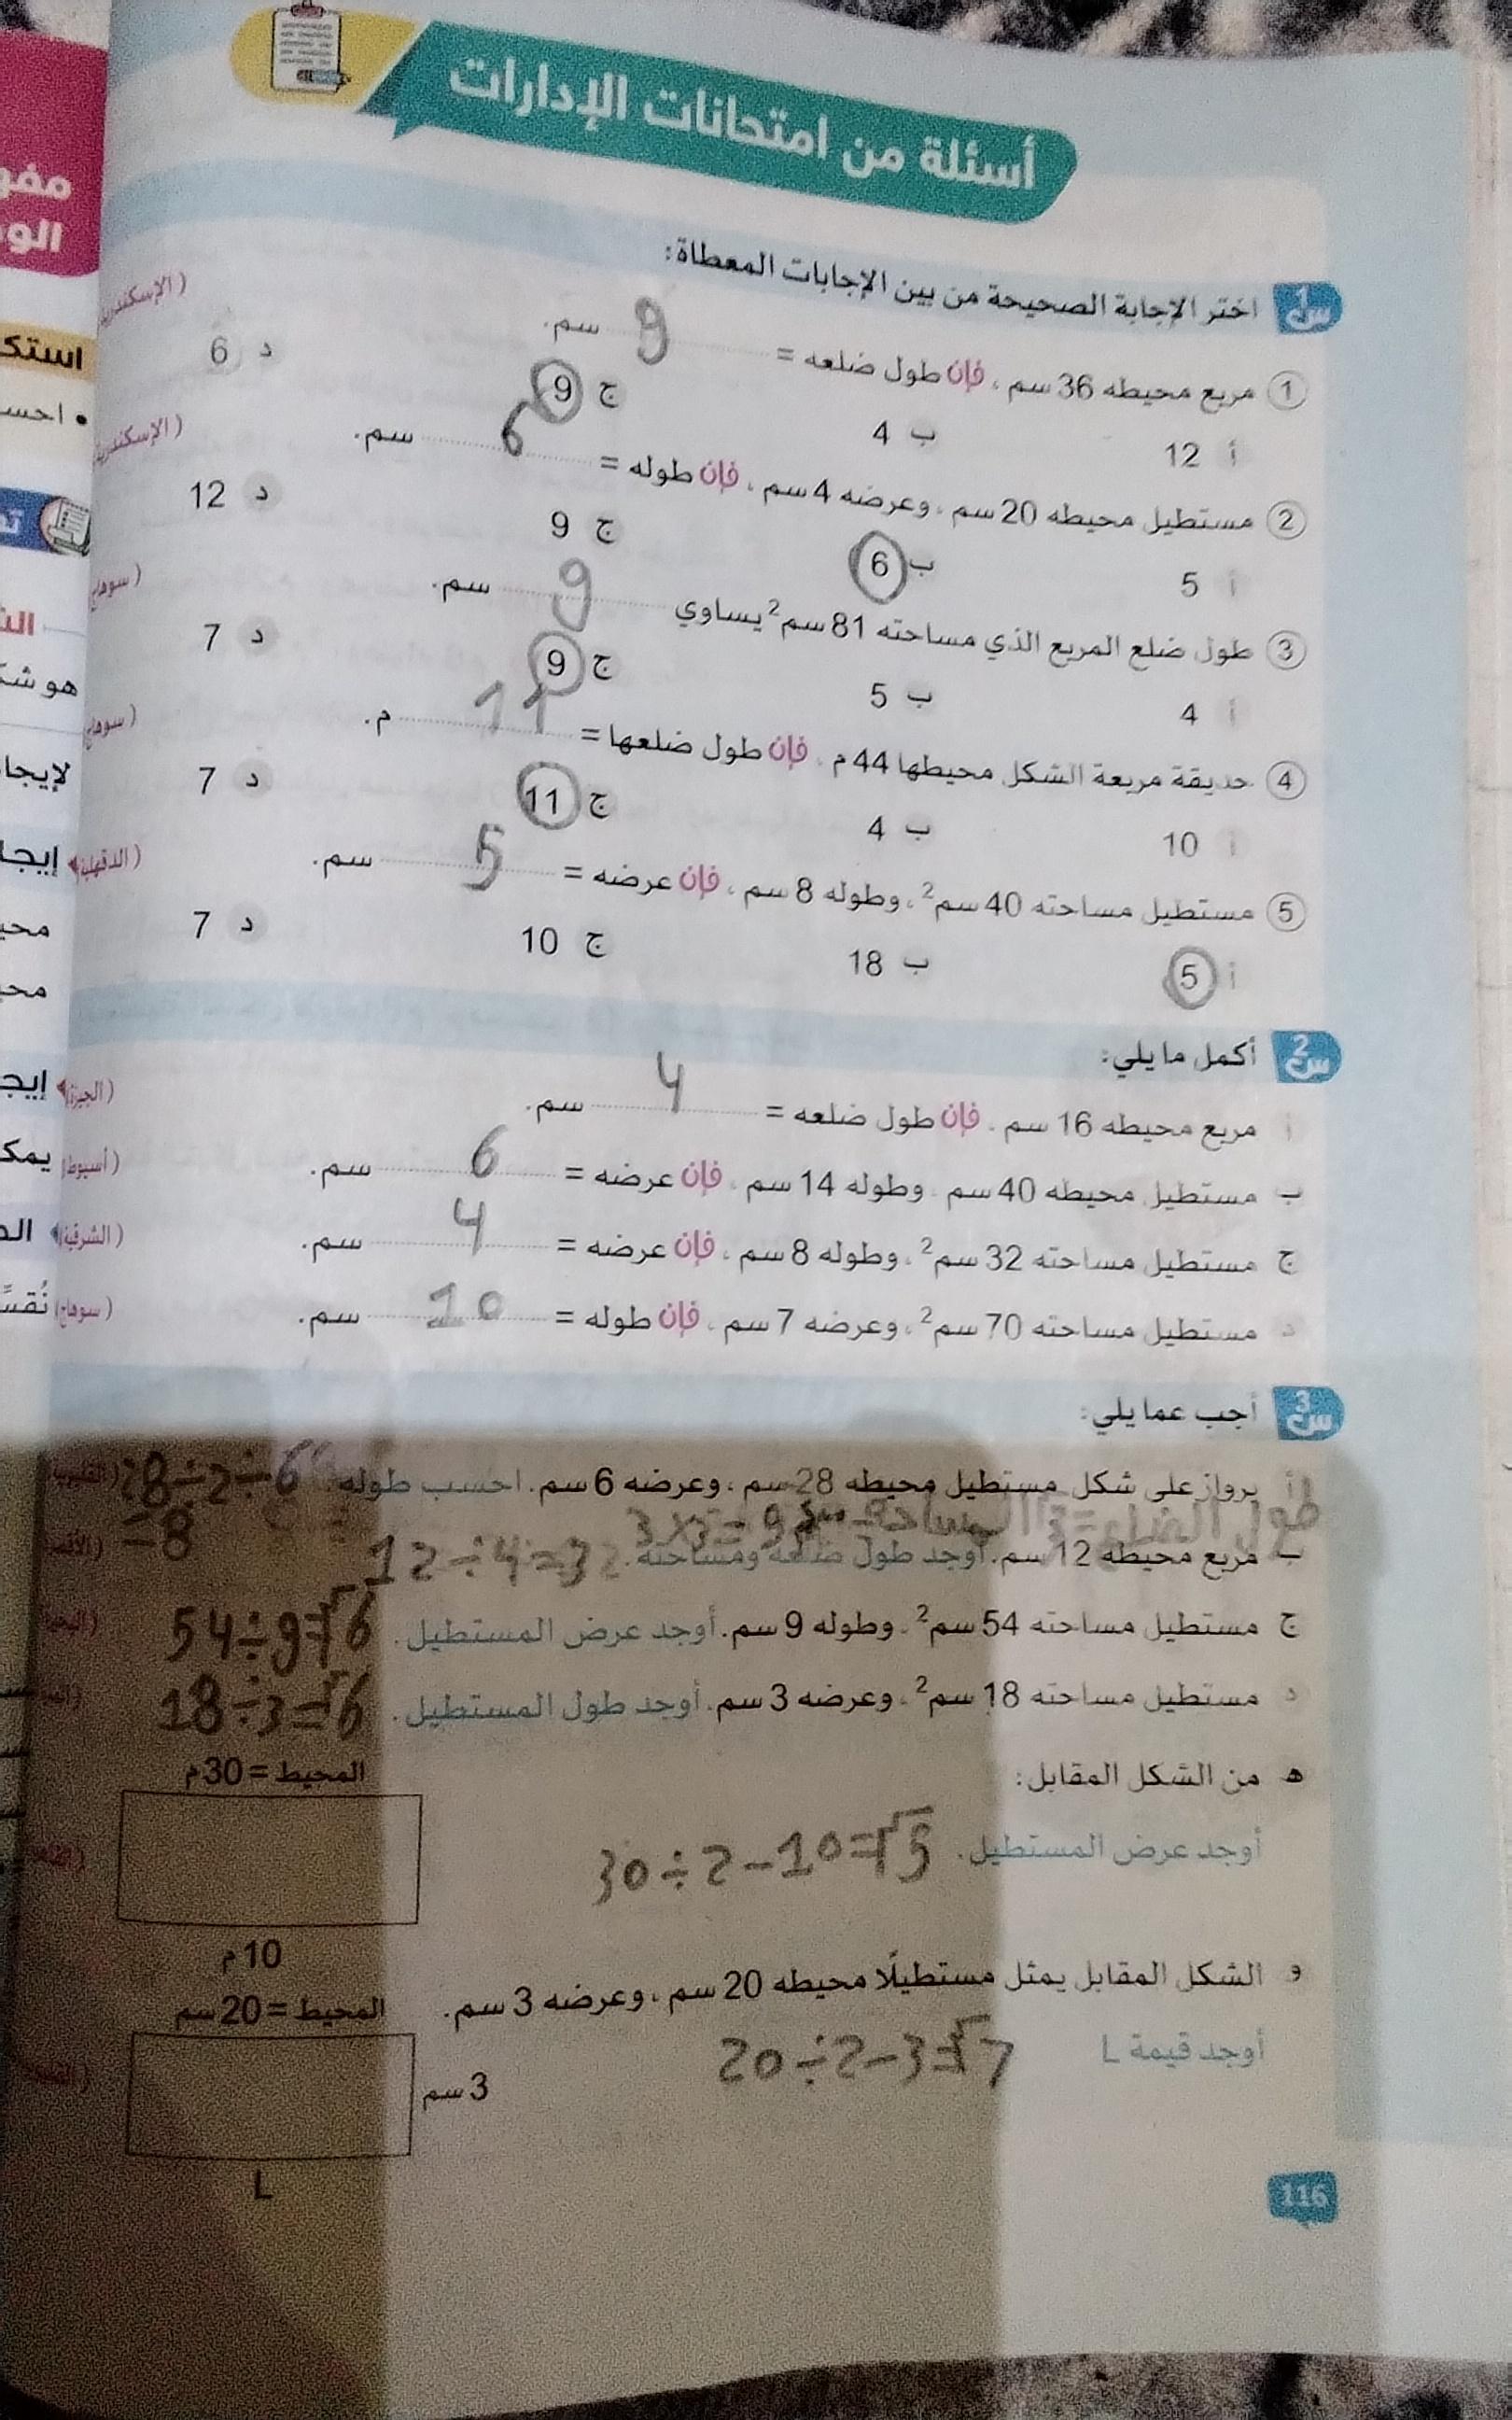 أسئلة من امتحانات الإدارات
س1 اختر الإجابة الصحيحة من بين الإجابات المعطاة:
1 مربع محيطه 36 سم ، فإن طول ضلعه = 9 سم. (الإسكندرية
أ 12 ب 4 ج 9 د 6
2 مستطيل محيطه 20 سم ، وعرضه 4 سم ، فإن طوله = 6 سم. (الإسكندرية
أ 5 ب 6 ج 9 د 12
3 طول ضلع المربع الذي مساحته 81 سم² يساوي 9 سم. (سوهاج
أ 4 ب 5 ج 9 د 7
4 حديقة مربعة الشكل محيطها 44 م ، فإن طول ضلعها = 11 م. (سوهاج
أ 10 ب 4 ج 11 د 7
5 مستطيل مساحته 40 سم² ، وطوله 8 سم ، فإن عرضه = 5 سم. (الدقهلية)
أ 5 ب 18 ج 10 د 7
س2 أكمل ما يلي:
أ مربع محيطه 16 سم ، فإن طول ضلعه = 4 سم. (الجيزة)
ب مستطيل محيطه 40 سم ، وطوله 14 سم ، فإن عرضه = 6 سم. (أسيوط)
ج مستطيل مساحته 32 سم² ، وطوله 8 سم ، فإن عرضه = 4 سم. (الشرقية)
د مستطيل مساحته 70 سم² ، وعرضه 7 سم ، فإن طوله = 10 سم. (سوهاج)
س3 أجب عما يلي:
أ برواز على شكل مستطيل محيطه 28 سم ، وعرضه 6 سم. احسب طوله. 28÷2-6
=8
طول الضلع=3 المساحة 3×3=9
ب مربع محيطه 12 سم. أوجد طول ضلعه ومساحته. 12÷4=3
ج مستطيل مساحته 54 سم² ، وطوله 9 سم. أوجد عرض المستطيل. 54÷9=6
د مستطيل مساحته 18 سم² ، وعرضه 3 سم. أوجد طول المستطيل. 18÷3=6
هـ من الشكل المقابل:
المحيط = 30 م
أوجد عرض المستطيل. 30÷2-10=5
10 م
و الشكل المقابل يمثل مستطيلًا محيطه 20 سم ، وعرضه 3 سم.
المحيط = 20 سم
أوجد قيمة L 20÷2-3=7
3 سم
L
116
استك
• احس
هو شك
لإيجا
إيجا
محي
محي
إيج
يمك